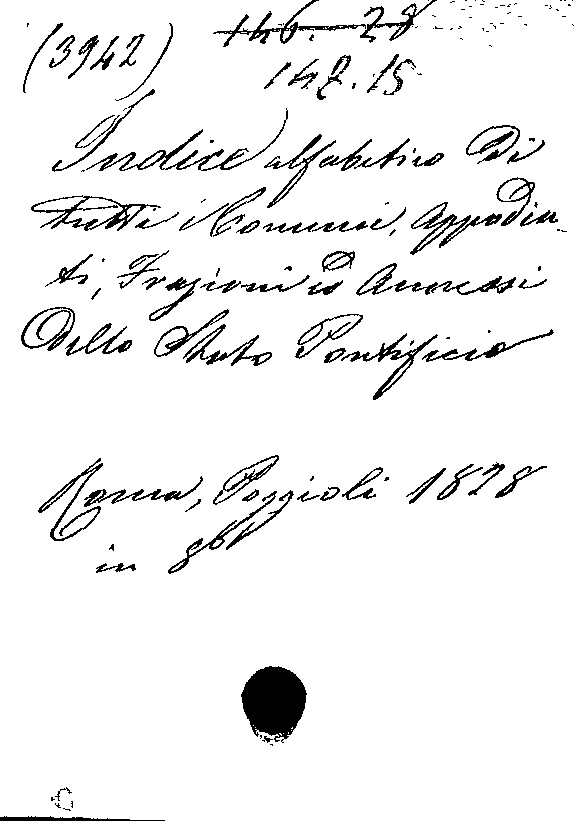 (3942) 146. 28
147.15
Indice alfabetico Di
tutti i Comuni, Appodia-
ti, Frazioni ed Annessi
dello Stato Pontificio
Roma, Poggioli 1828
in